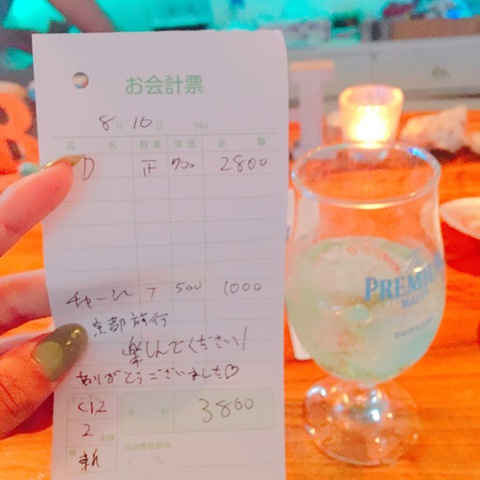 お会計票
8月10日 No.
品名 数量 単価 金額
D 正 700 2800
チャージ T 500 1000
京都旅行
楽しんでください!
ありがとうございました♡
C12
2名様
合計 3800
内消費税額等
PREMIUM
MALT'S